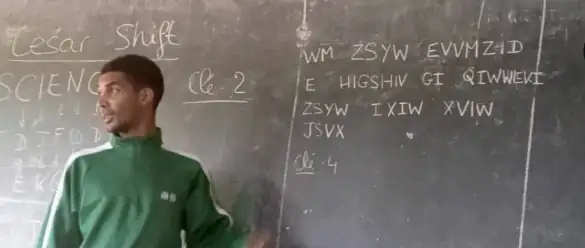 César Shift
SCIENC
Clé - 2
D J F O D
E K
WM ZSYW EVVMZID
E HIGSHIV GI QIWWEKI
ZSYW IXIW XVIW
JSVX
Clé - 4